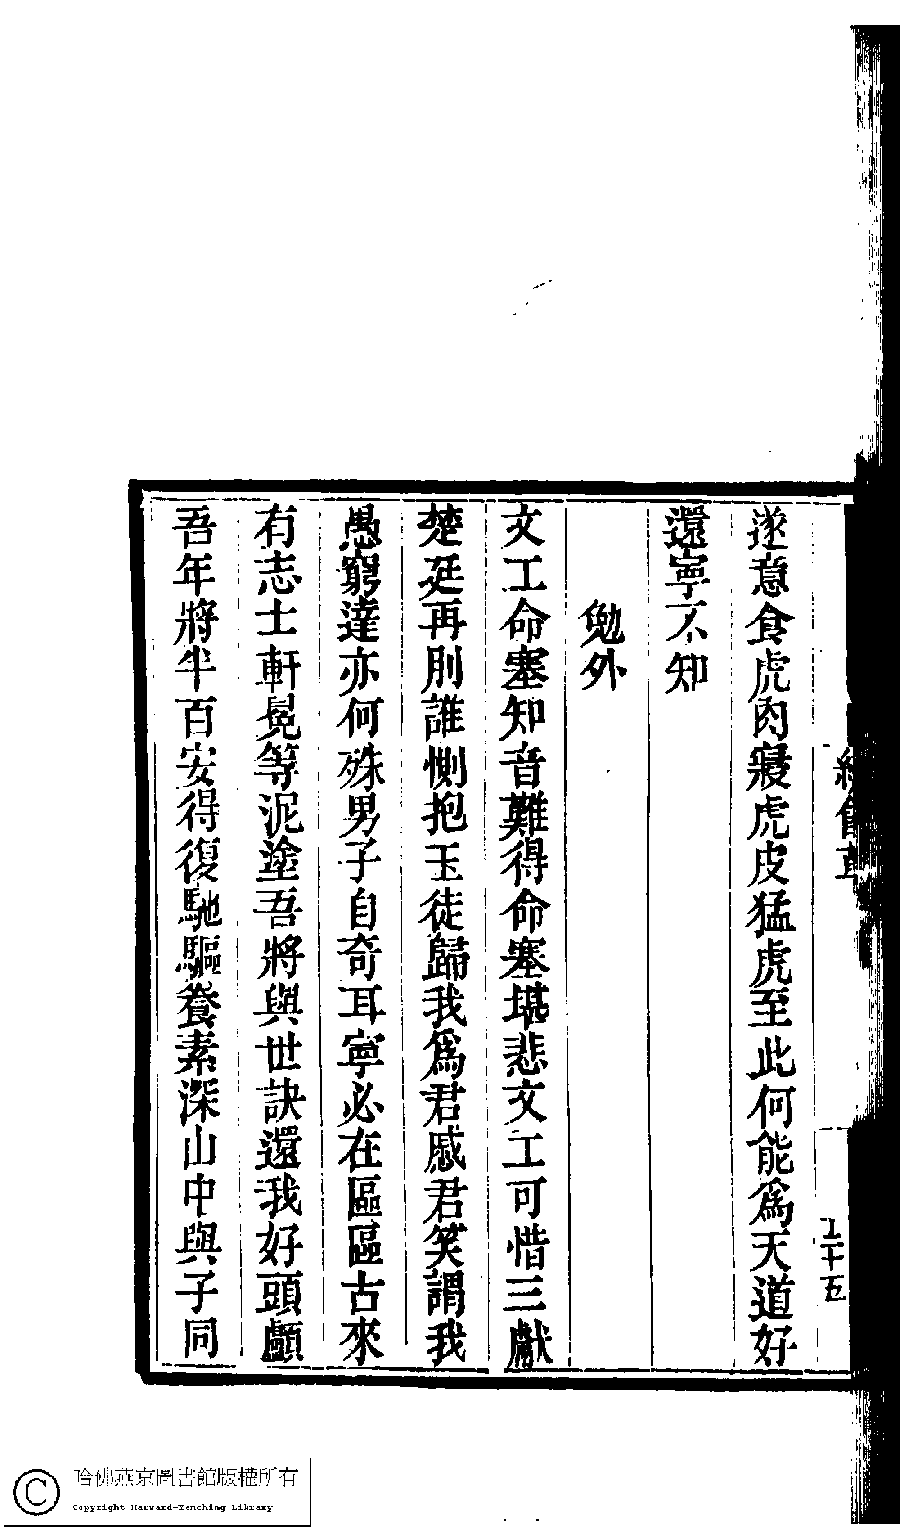 遂意食虎肉寢虎皮猛虎至此何能爲天道好
還寧不知
勉外
文工命塞知音難得命塞堪悲文工可惜三獻
楚廷再刖誰惻抱玉徒歸我爲君慼君笑謂我
愚窮達亦何殊男子自奇耳寧必在區區古來
有志士軒冕等泥塗吾將與世訣還我好頭顱
吾年將半百安得復馳驅養素深山中與子同
哈佛燕京圖書館版權所有
Copyright Harvard-Yenching Library